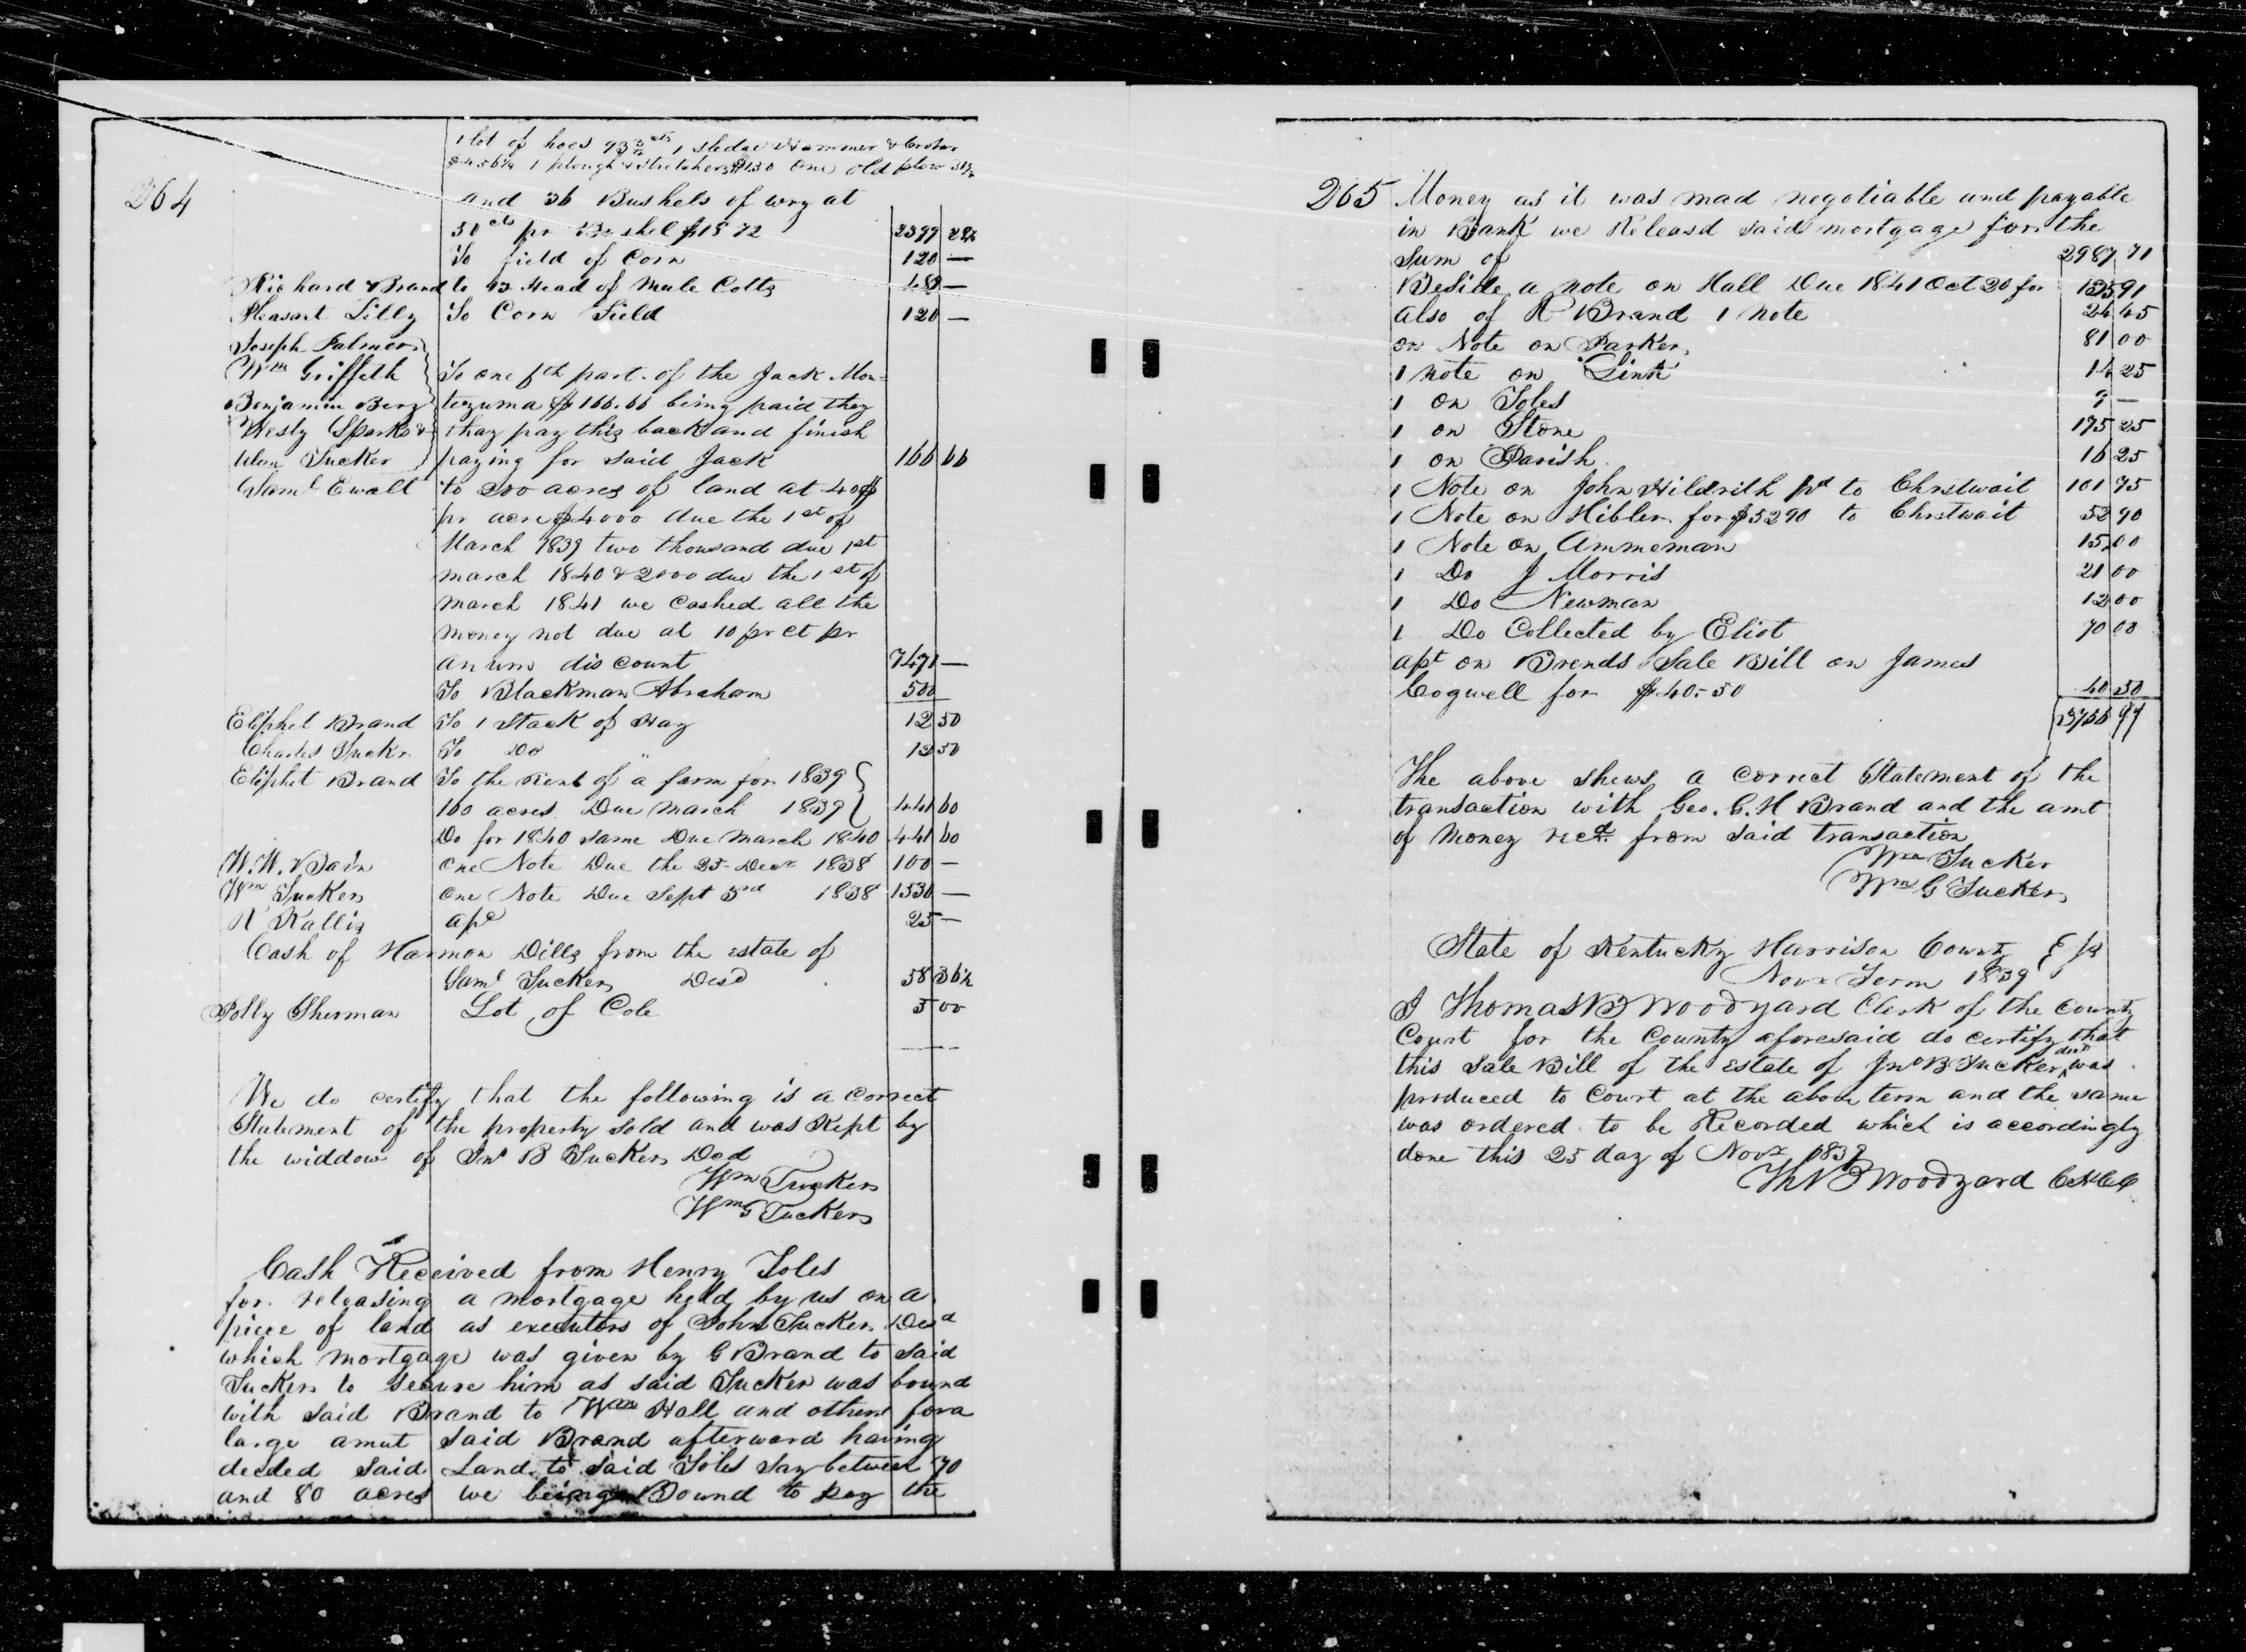 264
1 lot of hoes 93 3/4 cts 1 sledge Hammer &
$4.56 1/4 1 plough & Stretchers $1.30 One old plow 31 1/4
and 36 Bushels of wry at
50 cts pr Bushel $18 72 2399 28 1/2
To field of Corn 120 —
Richard Brand to 12 Head of Mule Colts 480 —
Pleasant Lilly To Corn Field 120 —
Joseph Palmer
Wm Griffeth To one 5th part of the Jack Mon=
Benjamin Berry tezuma $166.66 being paid they
Wesly Sparks & thay pay this back and finish
Wm Tucker paying for said Jack 166 66
Saml Ewalt to 200 acres of land at 40$
pr acre $4000 due the 1st of
March 1839 two thousand due 1st
march 1840 & 2000 due the 1st of
March 1841 we Cashed all the
money not due at 10 pr ct pr
anum discount 7471 —
To Blackman Abraham 500
Eliphet Brand To 1 Stack of Hay 12 50
Charles Tucker To Do " 12 50
Eliphet Brand To the Rent of a farm for 1839
160 acres Due March 1839 441 60
Do for 1840 same Due March 1840 441 60
W. W. Bain One Note Due the 25 Decr 1838 100 —
Wm Tucker One Note Due Sept 3rd 1838 1530 —
R Kallis apc 25 —
Cash of Harmon Dills from the estate of
Saml Tucker Decd 58 36 1/2
Polly Sherman Lot of Cole 5 00
We do certify that the following is a correct
Statement of the property sold and was Kept by
the widdow of Jno B Tucker Decd
Wm Tucker
Wm G Tucker
Cash Received from Henry Toles
for releasing a mortgage held by us on a
piece of land as executors of John Tucker Decd
which mortgage was given by G Brand to said
Tucker to secure him as said Tucker was bound
with said Brand to Wm Hall and others for a
large amut said Brand afterward having
deeded said Land to said Toles say between 70
and 80 acres we being Bound to pay the
265 Money as it was mad negotiable and payable
in Bank we Releasd said mortgage for the
Sum of 2987 71
Beside a note on Hall Due 1841 Oct 20 for 135 91
also of R Brand 1 note 24 45
on Note on Parker 81 00
1 note on Link 14 25
1 on Toles 9 —
1 on Stone 175 25
1 on Parish 16 25
1 Note on John Hildrith pd to Chrstwait 101 75
1 Note on Hibler for $52 90 to Chrstwait 52 90
1 Note on Ammeman 15 00
1 Do J Morris 21 00
1 Do Newman 12 00
1 Do Collected by Eliot 70 00
apt on Brends Sale Bill on James
Cogwell for $40-50 40 50
The above shews a correct Statement of the
transaction with Geo. G. H Brand and the amt
of Money recd from said transaction
Wm Tucker
Wm G Tucker
State of Kentucky Harrison County
Novr Term 1839
I Thomas B Woodyard Clerk of the County
Court for the County aforesaid do certify that
this Sale Bill of the estate of Jno B Tucker decd was
produced to Court at the above term and the same
was ordered to be Recorded which is accordingly
done this 25 day of Novr 1839
Th B Woodyard